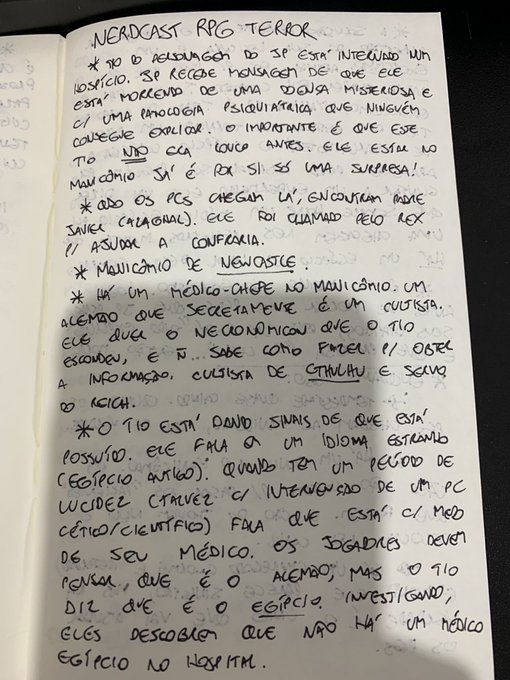 NERDCAST RPG TERROR
* TIO DO PERSONAGEM DO JP ESTÁ INTERNADO NUM
HOSPÍCIO. JP RECEBE MENSAGEM DE QUE ELE
ESTÁ MORRENDO DE UMA DOENÇA MISTERIOSA E
C/ UMA PATOLOGIA PSIQUIÁTRICA QUE NINGUÉM
CONSEGUE EXPLICAR. O IMPORTANTE É QUE ESTE
TIO NÃO ERA LOUCO ANTES. ELE ESTAR NO
MANICÔMIO JÁ É POR SI SÓ UMA SURPRESA!
* QDO OS PCS CHEGAM LÁ, ENCONTRAM PADRE
JAVIER (AZAGHAL). ELE FOI CHAMADO PELO REX
P/ AJUDAR A CONFRARIA.
* MANICÔMIO DE NEWCASTLE.
* HÁ UM MÉDICO-CHEFE NO MANICÔMIO. UM
ALEMÃO QUE SECRETAMENTE É UM CULTISTA.
ELE QUER O NECRONOMICON QUE O TIO
ESCONDEU, E Ñ... SABE COMO FAZER P/ OBTER
A INFORMAÇÃO. CULTISTA DE CTHULHU E SERVO
DO REICH.
* O TIO ESTÁ DANDO SINAIS DE QUE ESTÁ
POSSUÍDO. ELE FALA EM UM IDIOMA ESTRANHO
(EGÍPCIO ANTIGO). QUANDO TEM UM PERÍODO DE
LUCIDEZ (TALVEZ C/ INTERVENÇÃO DE UM PC
CÉTICO/CIENTÍFICO) FALA QUE ESTÁ C/ MEDO
DE SEU MÉDICO. OS JOGADORES DEVEM
PENSAR QUE É O ALEMÃO, MAS O TIO
DIZ QUE É O EGÍPCIO. INVESTIGANDO,
ELES DESCOBREM QUE NÃO HÁ UM MÉDICO
EGÍPCIO NO HOSPITAL.